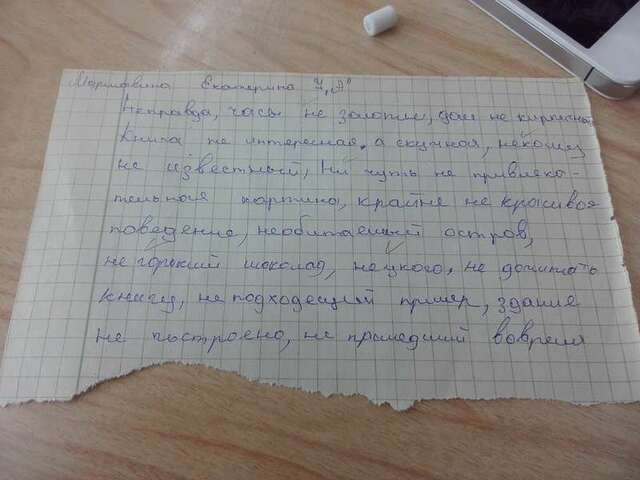 Екатерина "А"
Неправда, часы не золотые, дом не кирпичный
Книга не интересная, а скучная, некого
не известный, Ни чуть не привлека-
тельная картина, крайне не красивое
поведение, необитаемый остров,
не горький шоколад, нецкого, не дочитать
книгу, не подходещий пример, здание
не построено, не прошедший вовремя